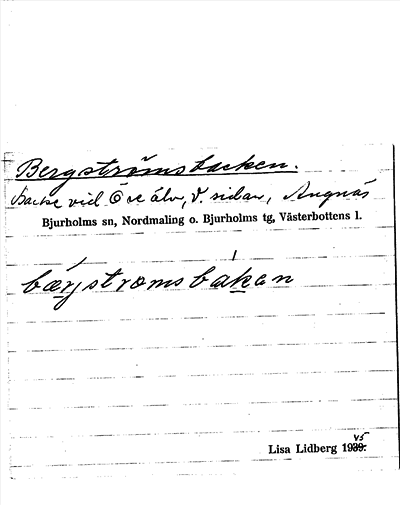 Bergströmsbacken.
Backe vid Öre älv, V. sidan, Angnäs
Bjurholms sn, Nordmaling o. Bjurholms tg, Västerbottens l.
bærjstromsbakan
Lisa Lidberg 1939. 45